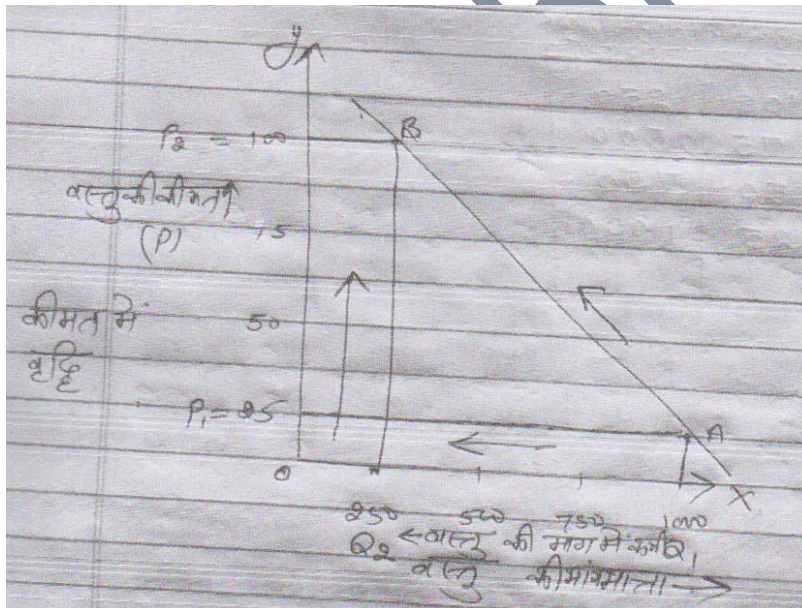 y
P2 = 100 B
वस्तु की कीमत
(P) 75
कीमत में 50
वृद्धि
P1 = 25 A
0 X
250 500 750 1000
Q2 ← वस्तु की मांग में कमी Q1
वस्तु की मांग मात्रा →